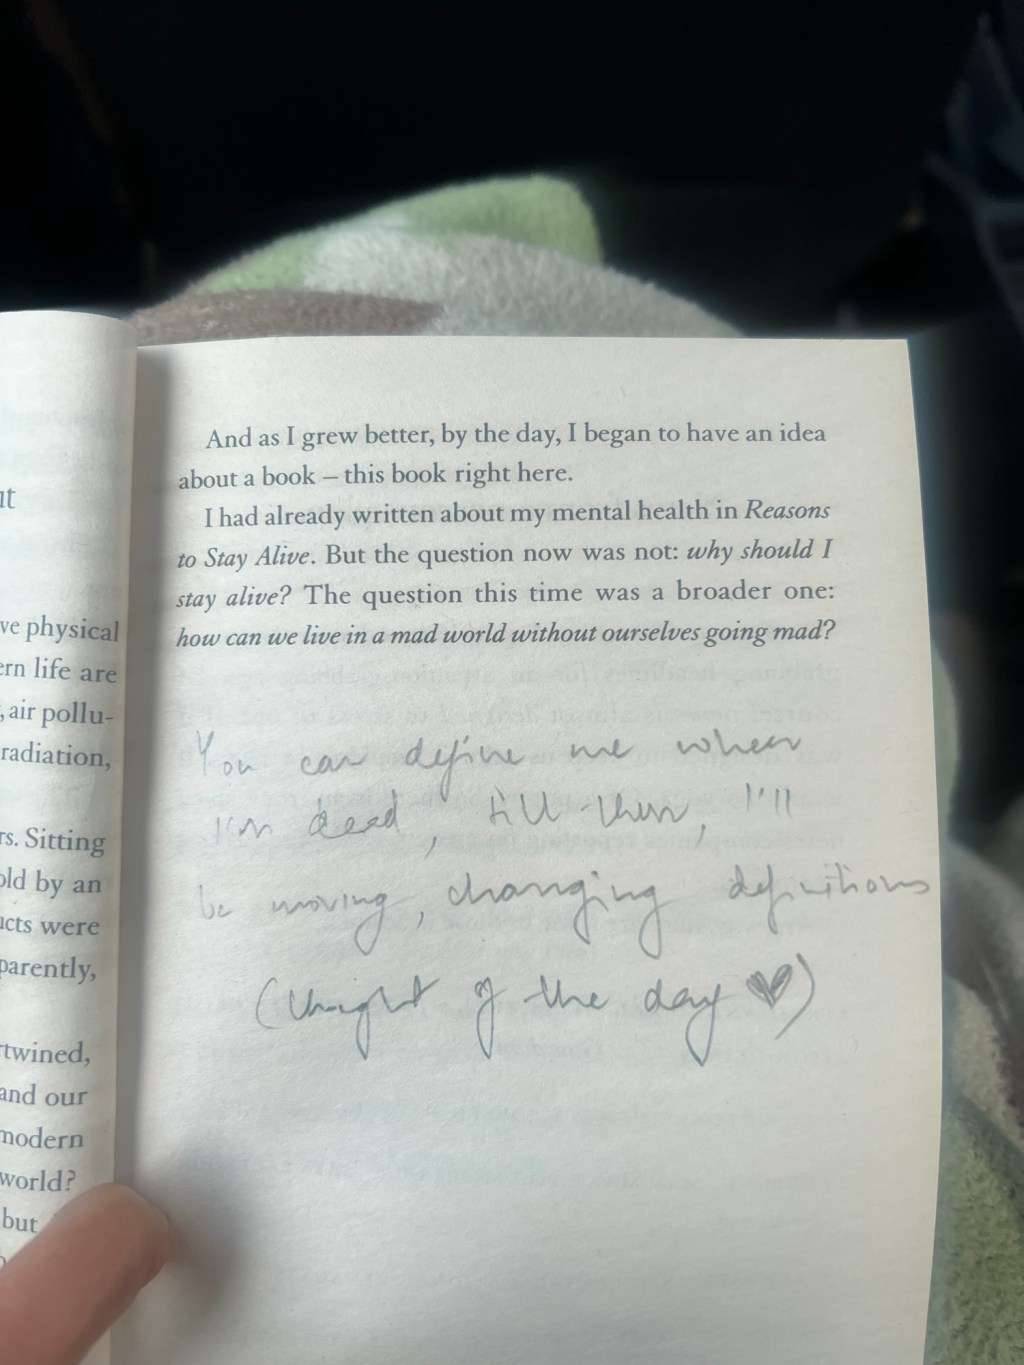 ut
ve physical
ern life are
, air pollu-
radiation,
rs. Sitting
old by an
ucts were
parently,
rtwined,
and our
modern
world?
but
And as I grew better, by the day, I began to have an idea
about a book – this book right here.
I had already written about my mental health in Reasons
to Stay Alive. But the question now was not: why should I
stay alive? The question this time was a broader one:
how can we live in a mad world without ourselves going mad?
You can define me when
I'm dead, till then, I'll
be moving, changing definitions
(thought of the day ♥)